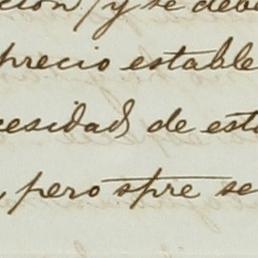 ción, y se debe
precio estable
cesidad de esta
, pero spre se